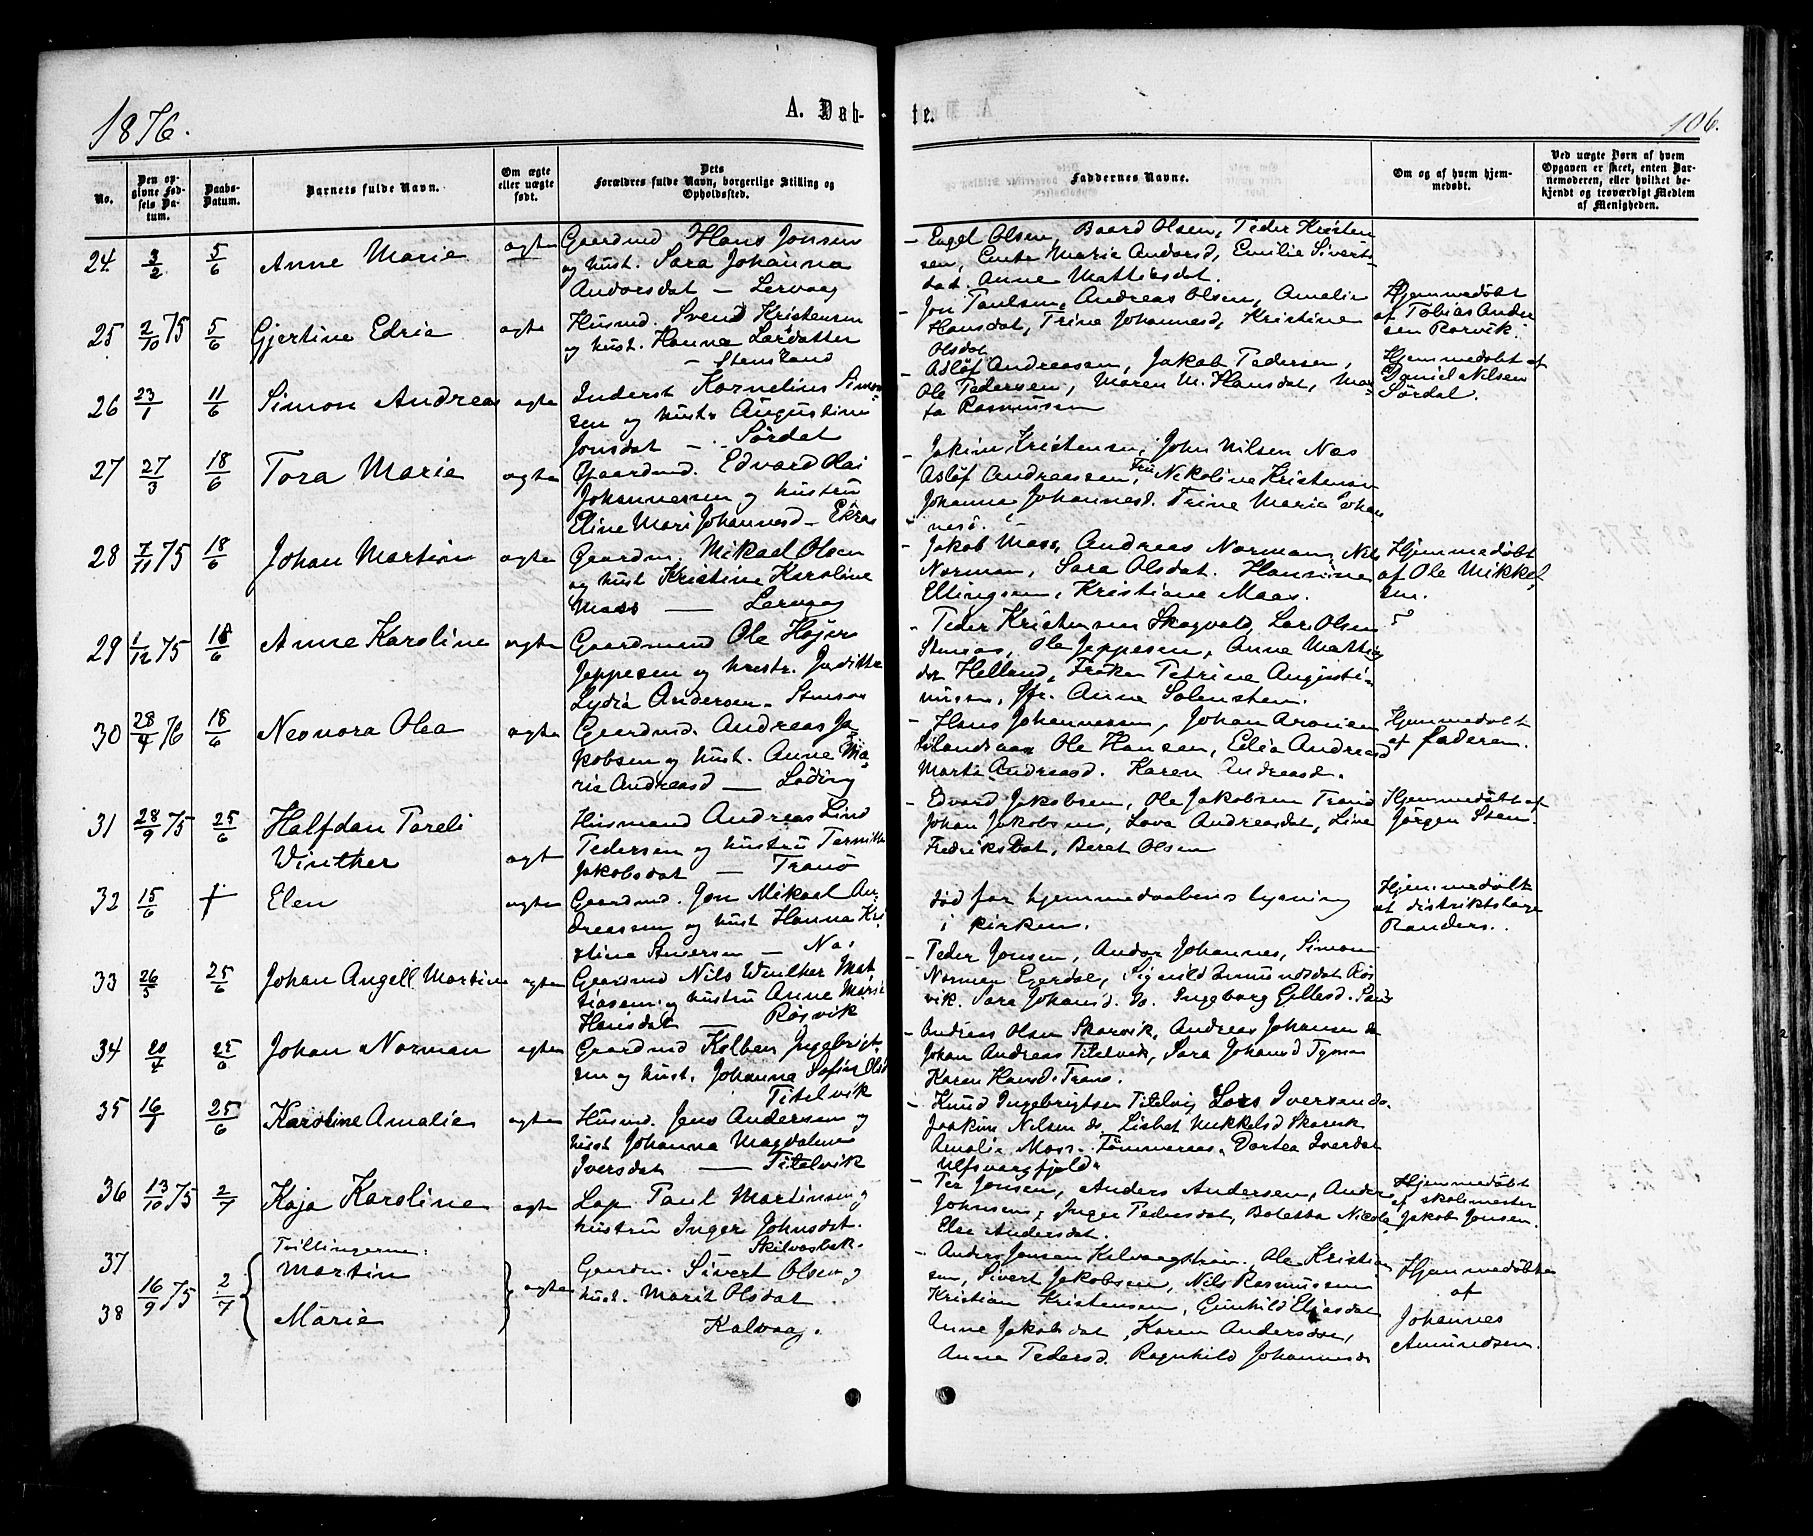 1876.
A. Døb-
te.
106.
No.
Den opgivne Fødsels Datum.
Daabs-Datum.
Barnets fulde Navn.
Om ægte eller uægte født.
Dets Forældres fulde Navn, borgerlige Stilling og Opholdssted.
Faddernes Navne.
Om og af hvem hjemmedøbt.
Ved uægte Børn af hvem Opgaven er skeet, enten Barnemoderen, eller hvilket bekjendt og troværdigt Medlem af Menigheden.
24. 3/2 5/6 Anne Marie ægte
Gaardmd Hans Jonsen
og hust. Sara Johanna
Andorsdat — Lervaag
- Engel Olsen, Baard Olsen, Peder Kristen
sen, Marie Andorsd, Emilie Sivert-
dat. Anne Mattiasdat.
25 2/10 75 5/6 Gjertine Edria ægte
Husmd. Svend Kristensen
og hust. Hanna Larsdatter
— Stensland
- Jon Paulsen, Andreas Olsen, Amalie
Hansdat, Trine Johannesd, Kristine
Olsdat
Hjemmedøbt
af Tobias Ander
sen Rørvik.
26 23/1 11/6 Simon Andreas ægte
Inderst Kornelius Simon
sen og hustr Augustine
Jonsdat — Sørdal
- Asløf Andreassen, Jakob Pedersen,
Ole Pedersen, Maren M. Hansdat, Mar
ta Rasmussen
Hjemmedøbt af
Daniel Nilsen
Sørdal.
27 27/3 18/6 Tora Marie ægte
Gaardmd. Edvard Kai
Johannessen og hustru
Eline Mari Johannesd — Ekras
- Jakim Kristensen, John Nilsen Næs
Asløf Andreassen, Fru Nikoline Kristensen
Johanna Johannesd. Trine Marie Johan
nesd.
28 7/11 75 18/6 Johan Martin ægte
Gaardm. Mikael Olsen
og hust Kristine Karoline
Maas — Lervaag
- Jakob Maas, Andreas Norman, Nils
Norman, Sara Olsdat. Hansine
Ellingsen, Kristiane Maas.
Hjemmedøbt
af Ole Mikkel
sen.
29 1/12 75 18/6 Anne Karoline ægte
Gaardmand Ole Højer
Jeppesen og hustr. Juditte
Lydia Andersen —
- Peder Kristensen Skogvold, Lars Olsen
Ole Jeppesen, Anne Mattias
dat Helland, Frøken Petrine Augusti-
nussen, Anne Solensten.
30 28/4 76 18/6 Neonora Olea ægte
Gaardmd. Andreas Ja
kobsen og hust. Anne Ma
rie Andreasd — Løding
- Hans Johannessen, Johan Aronsen
Ole Hansen, Edia Andreasd
Marta Andreasd. Karen Andreasd.
Hjemmedøbt
af faderen.
31 28/9 75 25/6 Halfdan Pareli
Winther ægt
Husmand Andreas Lind
Pedersen og hustru
Jakobsdat — Tranø
- Edvard Jakobsen, Ole Jakobsen Tranø
Johan Jakobsen, Lova Andreasdat, Line
Fredriksdat, Beret Olsen
Hjemmedøbt af
Jørgen Sten.
32 15/6 † Elen ægte
Gaardmd. Jon Mikael An
dreassen og hust Hanna Kri
stina Andersen — Næs
død før hjemmedaabens lysning
i kirken.
Hjemmedøbt
af distriktslæge
Randers.
33 26/3 25/6 Johan Angell Martin ægte
Gaardmd Nils Winther Mat
tiasen og hustru Anne Marie
Hansdat — Røsvik
- Peder Jonsen, Andor Johannes, Simon
Norman Egerdal, Sigrid Amundsdat Røs
vik. Sara Johansd. do. Ingeborg
34 20/4 25/6 Johan Norman ægte
Gaardmd Kolben Ingebrigt
sen og hust. Johanna Sofie Olsd
Titelvik
- Andreas Olsen Skarvik, Andreas Johansen do
Johan Andreas Titelvik, Sara Johansd
Karen Hansd. Tranø.
35 16/1 25/6 Karoline Amalie ægte
Husmd. Jens Andersen og
hust Johanna Magdalena
Iversdat — Titelvik
- Knud Ingebrigtsen Titelvig Lars Iversen do.
Joakim Nilsen do, Lisbet Mikkelsd Skarvik
Amalie Maas. Tømmeraas. Dortea Iversdat
Ulfsvaagfjeld.
36 13/10 75 2/7 Kaja Karoline ægte
Lap Paul Martinsen og
hustru Inger Johnsdat.
- Per Jonsen, Anders Andersen, Anders
Johnsen, Inger Pedersdat, Boletta Nicola
Else Andersdat.
Hjemmedøbt
af skolemester
Jakob Jonsen.
37 Tvillingerne:
16/9 75 2/7 Martin ægte
38 Marie
Gaardm. Sivert Olsen og
hust. Marit Olsdat
Kalvaag.
- Anders Jonsen, Ole Kristian
sen, Sivert Jakobsen, Nils Rasmussen
Kristian Kristensen, Gunhild Eliasdat
Anne Jakobsdat, Karen Andersdat,
Anne Pedersd. Ragnhild Johannesd
Hjemmedøbte
af
Johannes
Amundsen.